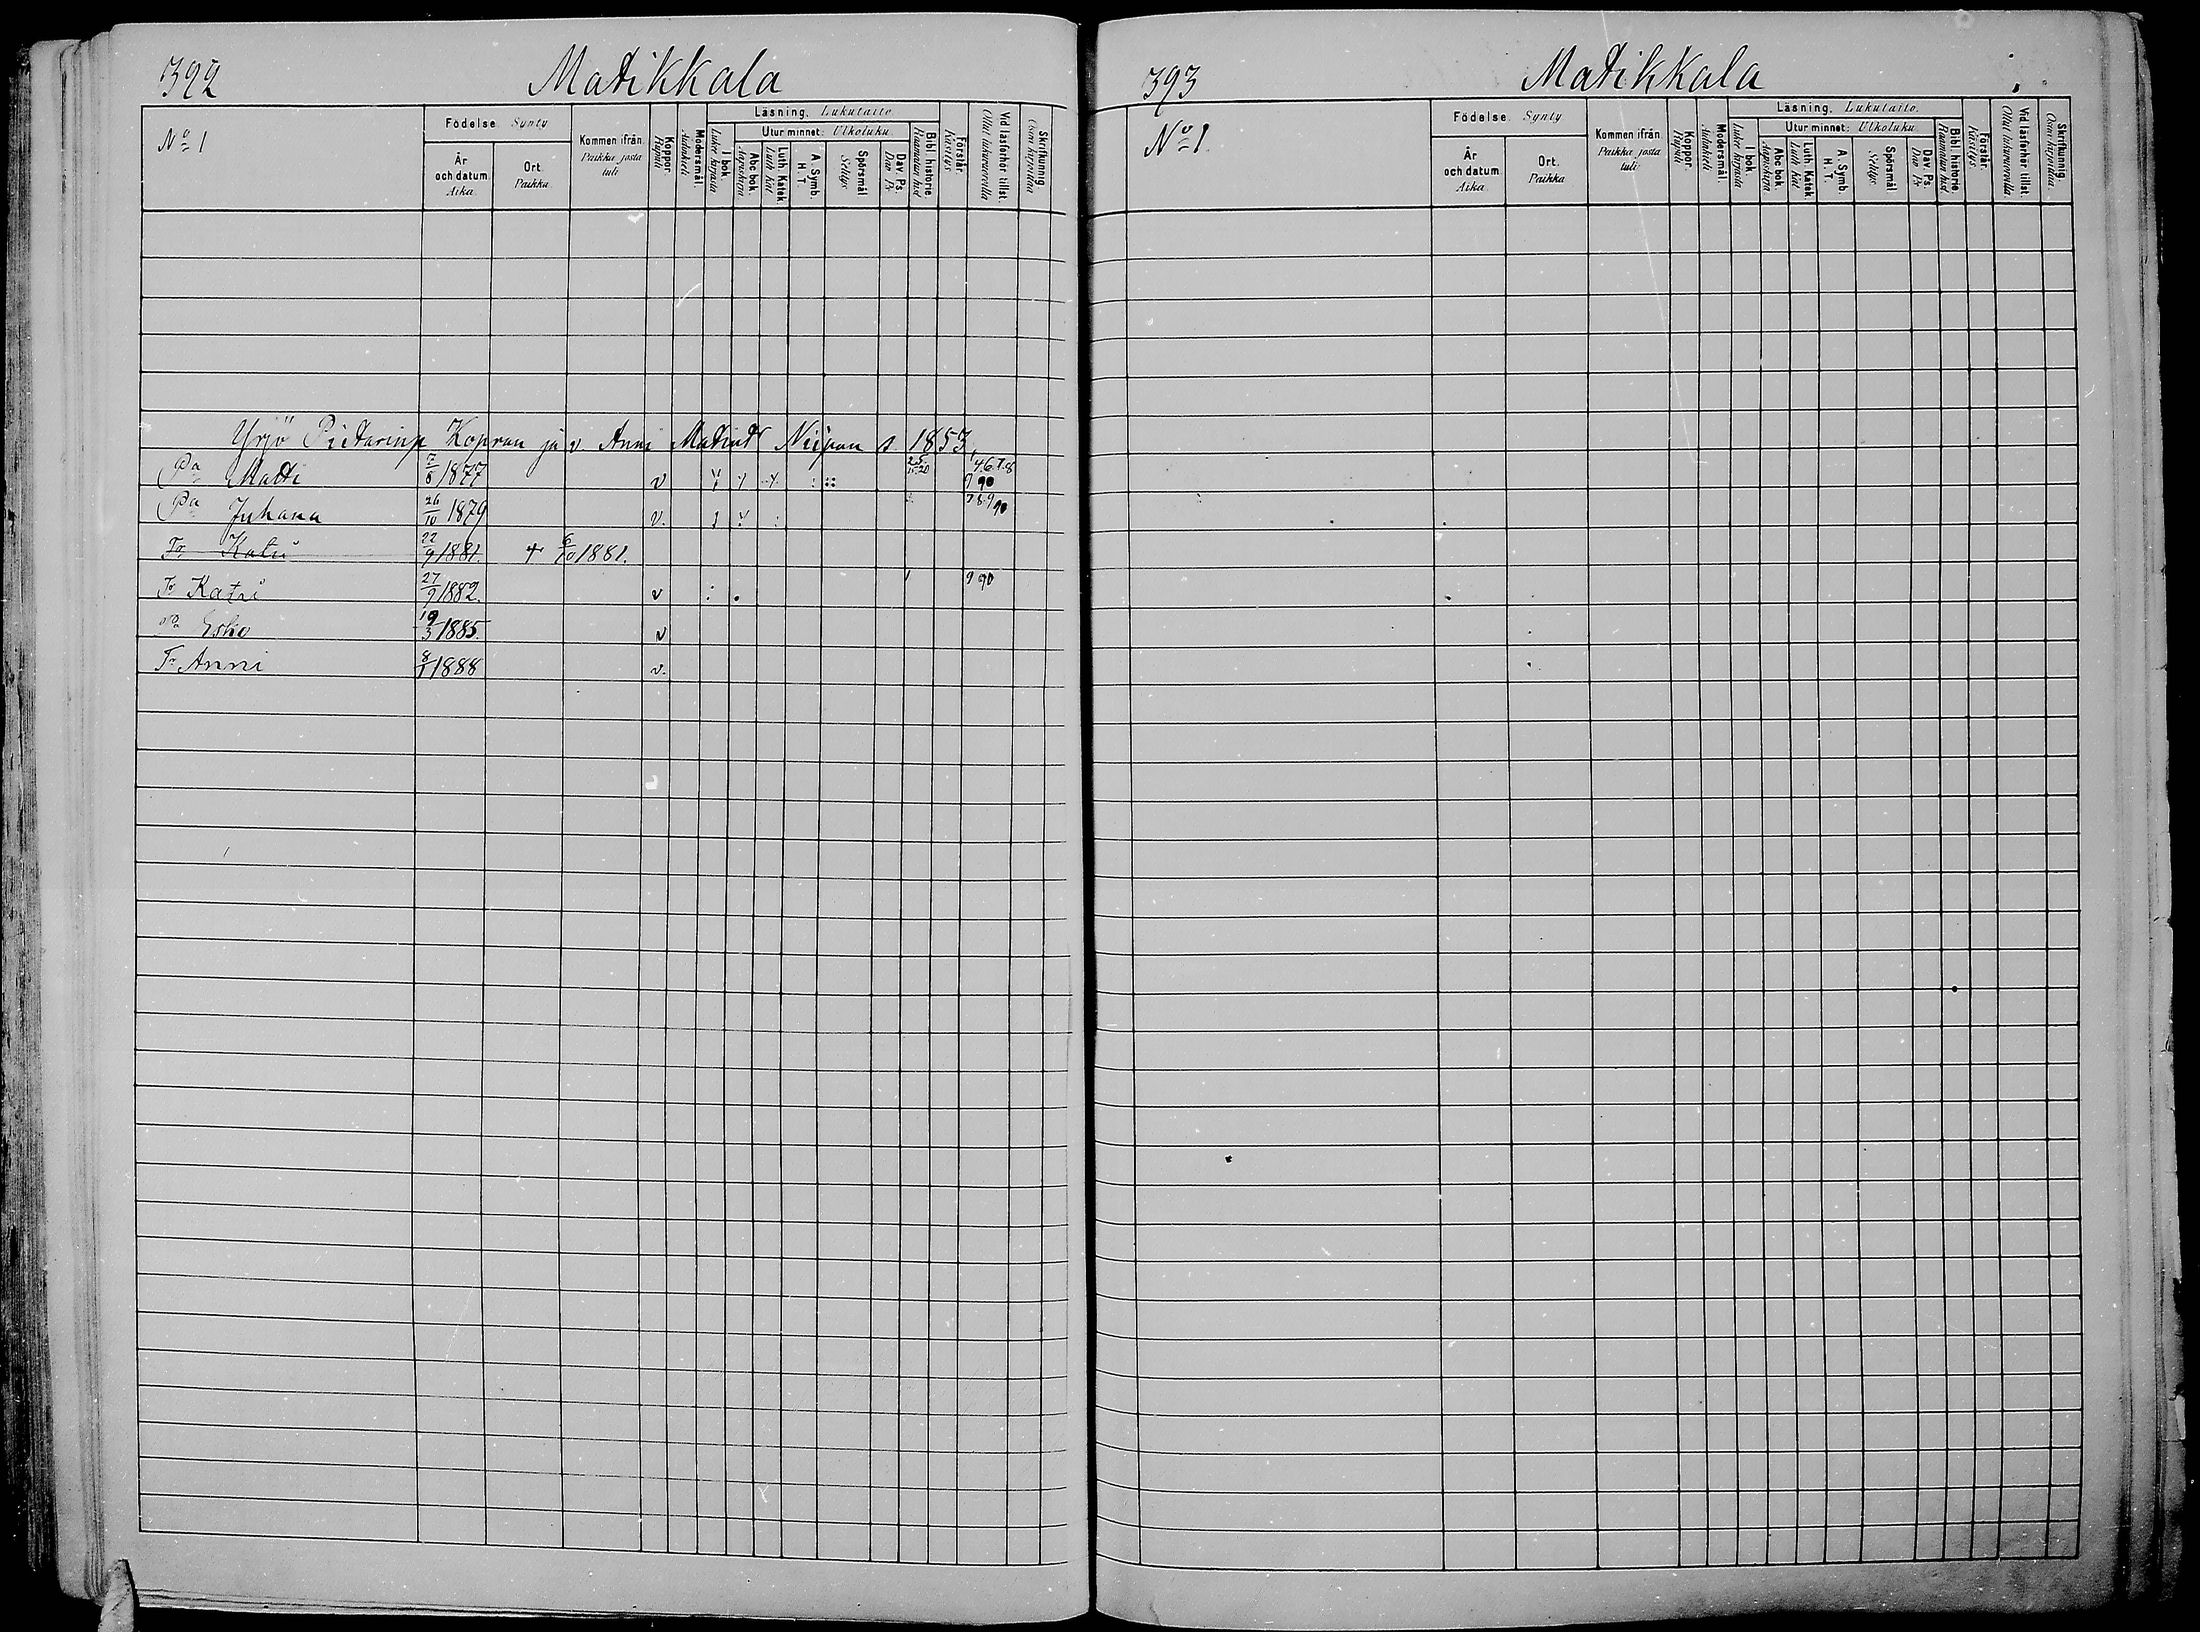 392 Matikkala
No 1
Födelse. Synty.
År och datum. Aika.
Ort. Paikka.
Kommen ifrån. Paikka josta tuli
Koppor. Rupuli
Modersmål. Äidinkieli
Läsning. Lukutaito.
I bok. Lukee kirjasta
Utur minnet: Ulkoluku
Abc bok. Aapiskirja
Luth. Katek. Luth Kat
A. Symb. H. T.
Spörsmål Selitys
Dav. Ps. Dav Ps
Bibl. historie. Raamatun hist
Förstår. Käsitys
Vid läsförhör tillst. Ollut lukuvuorolla
Skrifkunnig. Osaa kirjoittaa
Yrjö Pietarinp Kopran ja v. Anni Matint Niipan s. 1853,
Pa Matti 7/8 1877 v 25 15.20 4.6.7.8 9 90
Pa Juhana 26/10 1879 v. 7 8 9 90
Tr Katri 22/9 1881. + 6/10 1881.
Tr Katri 27/9 1882. v 9 90
Pa Esko 19/3 1885. v
Tr Anni 8/1 1888 v.
393 Matikkala
No 1.
Födelse. Synty.
År och datum. Aika.
Ort. Paikka
Kommen ifrån. Paikka josta tuli
Koppor. Rupuli
Modersmål. Äidinkieli
Läsning. Lukutaito.
I bok. Lukee kirjasta
Utur minnet: Ulkoluku
Abc bok. Aapiskirja
Luth. Katek. Luth Kat
A. Symb. H. T.
Spörsmål Selitys
Dav. Ps. Dav Ps
Bibl. historie Raamatun hist
Förstår. Käsitys.
Vid läsförhör tillst. Ollut lukuvuorolla.
Skrifkunnig. Osaa kirjoittaa.